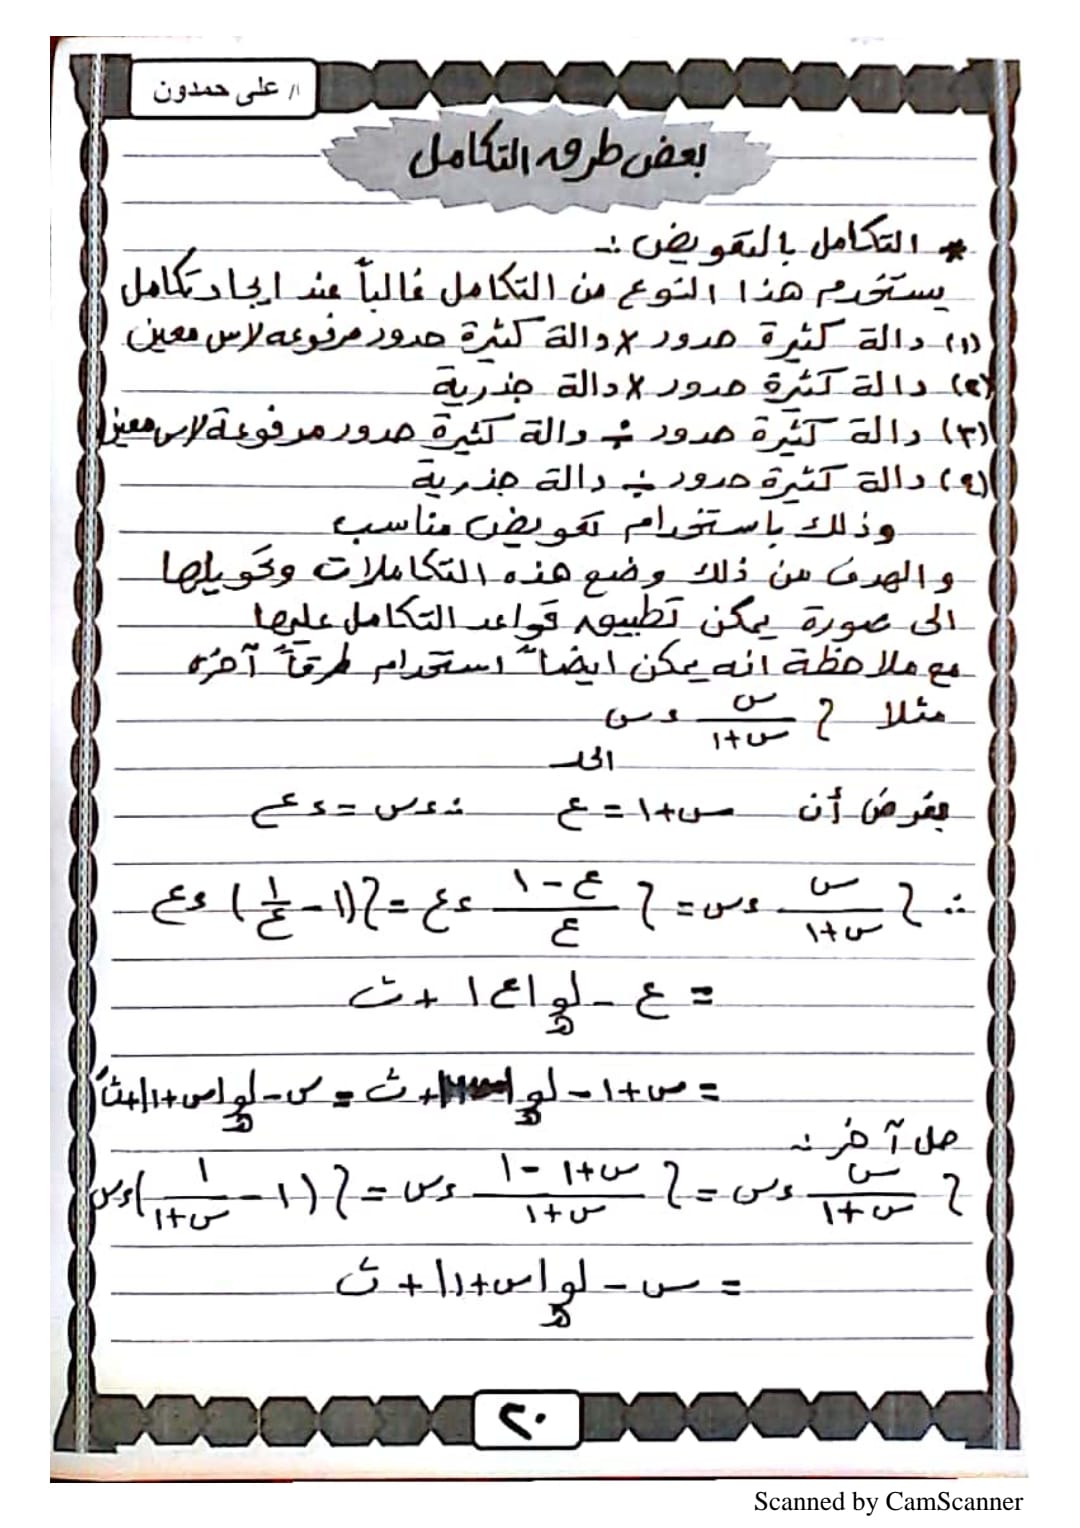 أ/ على حمدون
بعض طرق التكامل
* التكامل بالتعويض :-
يستخدم هذا النوع من التكامل غالباً عند ايجاد تكامل
(١) دالة كثيرة حدود × دالة كثيرة حدود مرفوعه لاس معين
(٢) دالة كثرة حدود × دالة جذرية
(٣) دالة كثيرة حدود ÷ دالة كثيرة حدود مرفوعة لاس معين
(٤) دالة كثيرة حدود ÷ دالة جذرية
وذلك باستخدام تعويض مناسب
والهدف من ذلك وضع هذه التكاملات وتحويلها
الى صورة يمكن تطبيق قواعد التكامل عليها
مع ملاحظة انه يمكن ايضاً استخدام طرقاً آخرى
مثلا ∫ س/(س+١) ءس
الحل
بفرض أن س+١ = ع ∴ ءس = ءع
∴ ∫ س/(س+١) ءس = ∫ (ع - ١)/ع ءع = ∫(١ - ١/ع) ءع
= ع - لوه |ع| + ث
= س+١ - لوه + ث = س - لوه |س+١| + ث َ
حل آخر :
∫ س/(س+١) ءس = ∫ (س+١ - ١)/(س+١) ءس = ∫ (١ - ١/(س+١)) ءس
= س - لوه |س+١| + ث
٢٠
Scanned by CamScanner